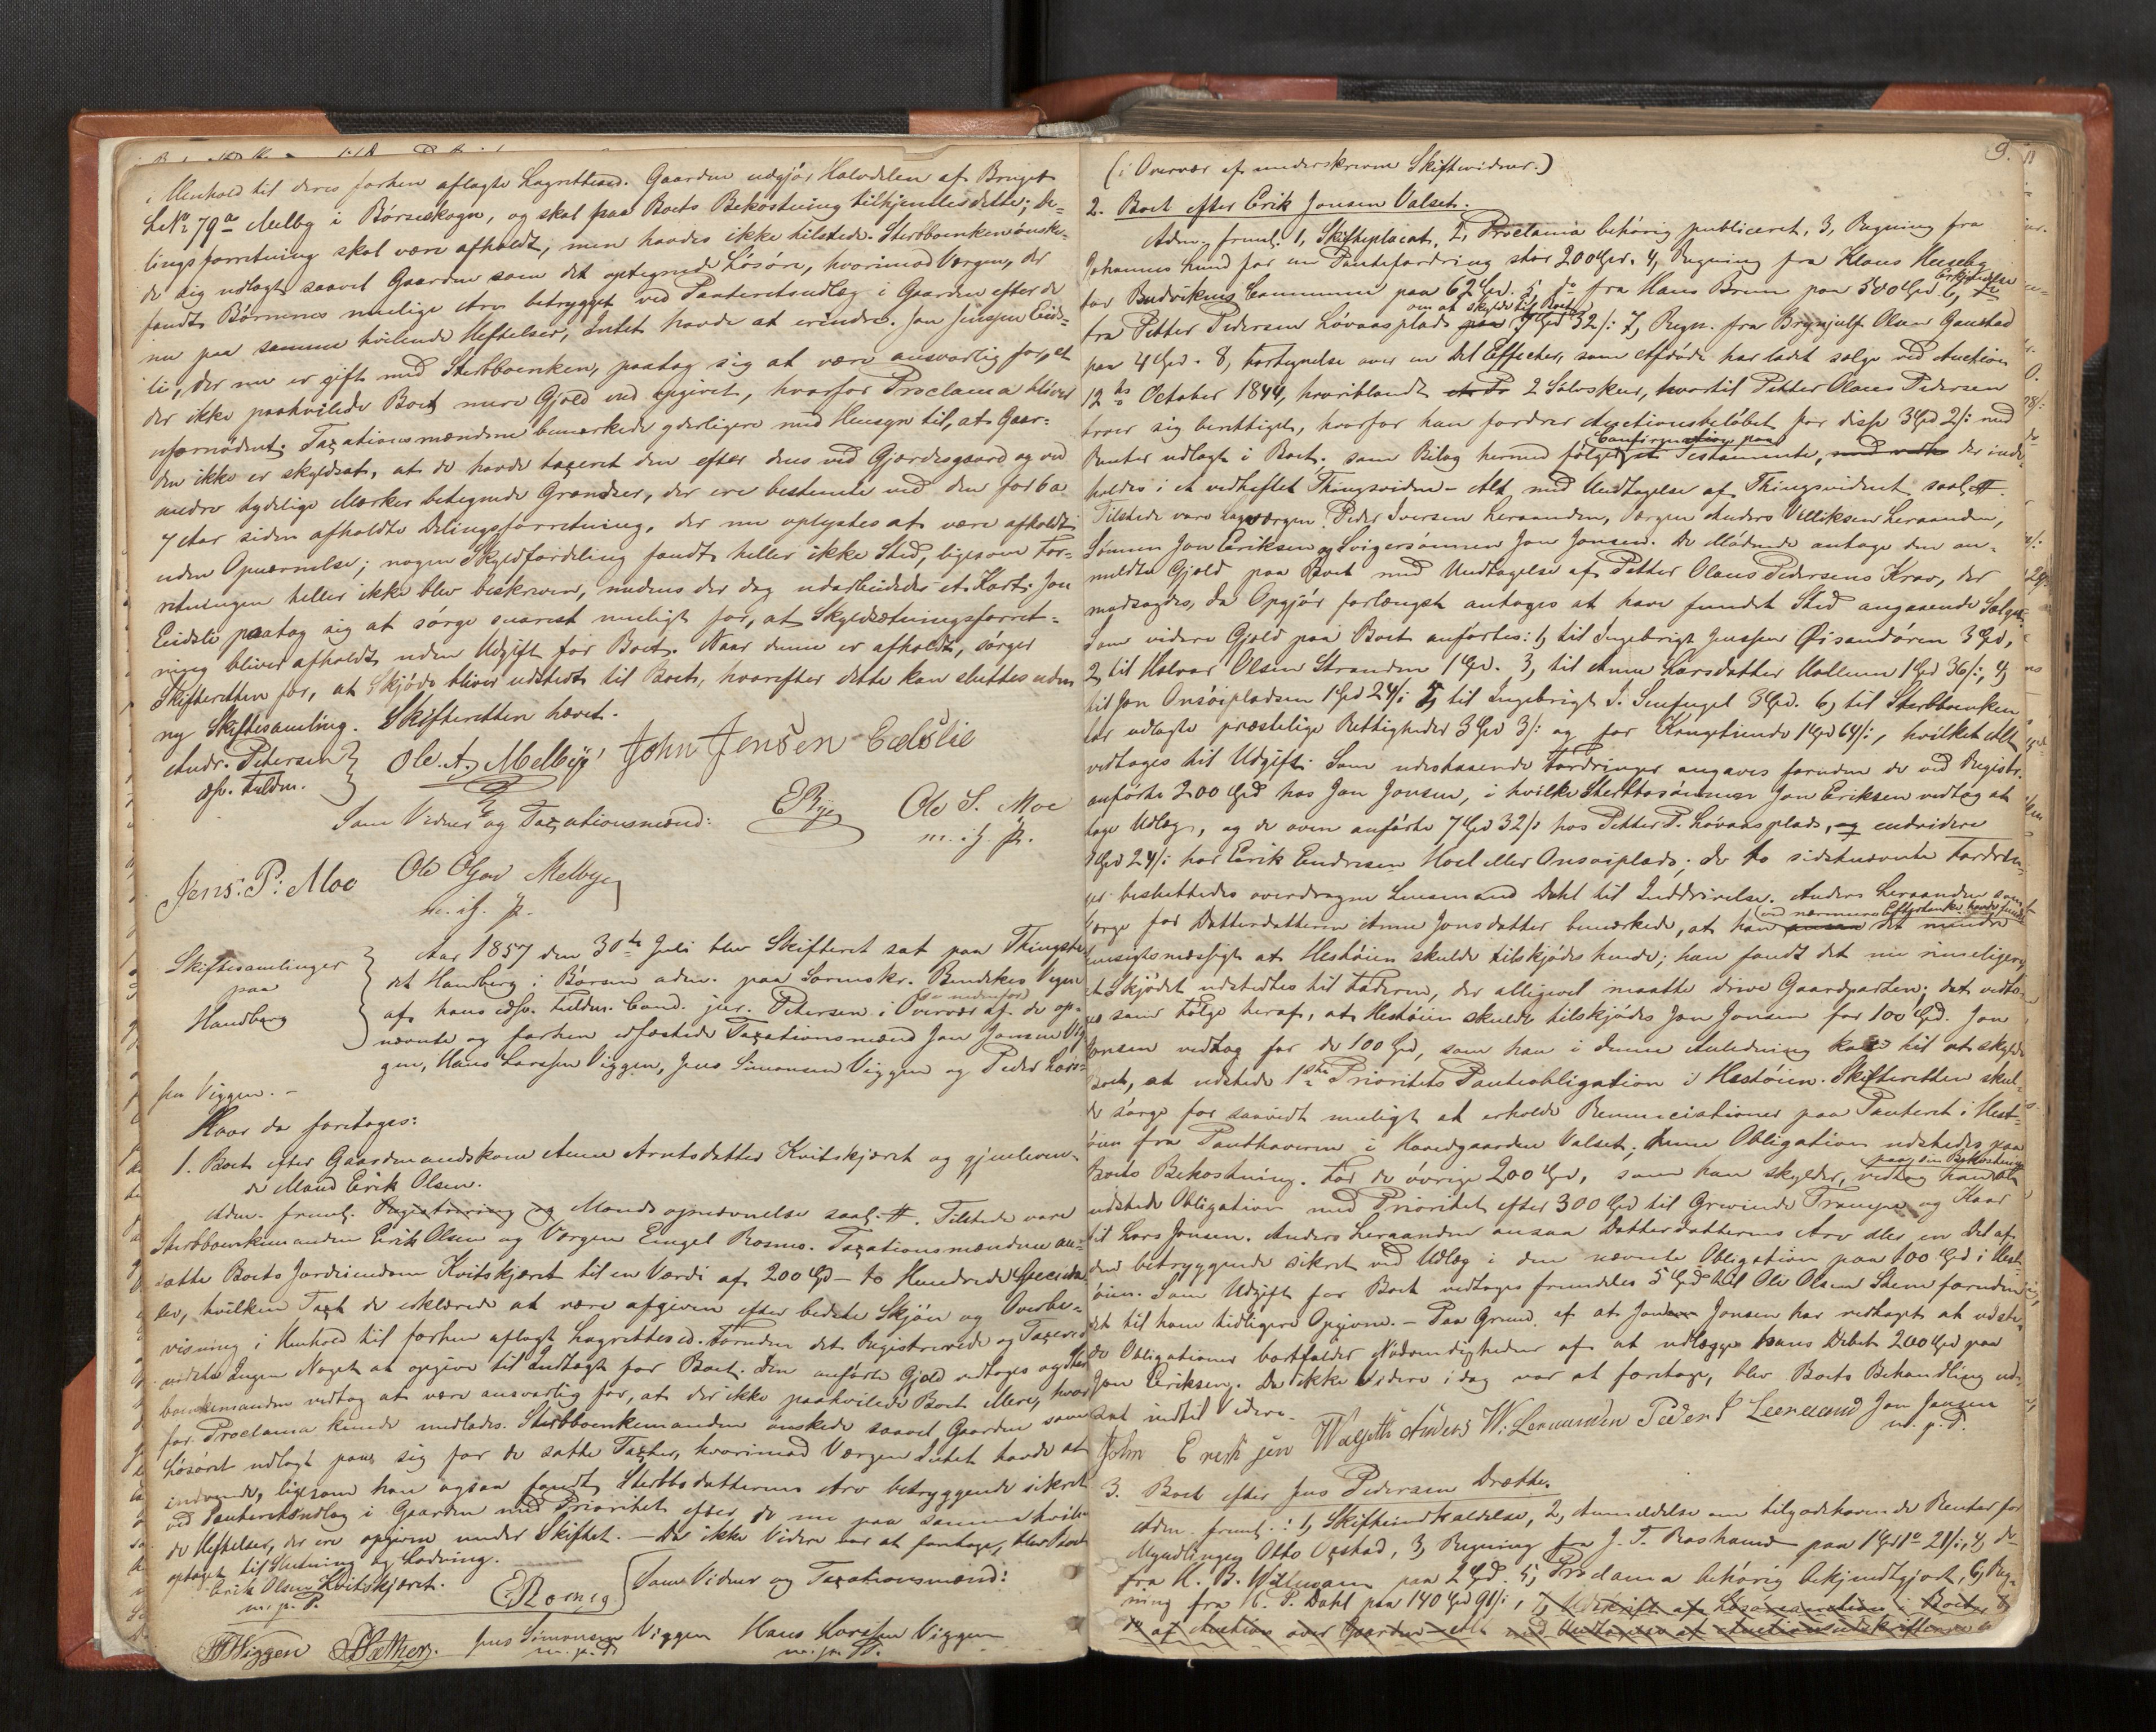 i Henhold til deres forhen aflagte Lagrettesed. Gaarden udgjør Halvdelen af Bruget
LNo 79a Melby i Børseskogn, og skal paa Boets Bekostning tilhjemles dette; De-
lingsforretning skal være afholdt, men havdes ikke tilstede. Sterbboenken ønske-
de sig udlagt saavel Gaarden som det optegnede Løsøre, hvorimod Værgen, der
fandt Børnenes mulige Arv betrygget ved Panteretsudlæg i Gaarden efter de
nu paa samme hvilende Heftelser, Intet havde at erindre. Jon Jensen Eids-
lie, der nu er gift med Sterbboenken, paatog sig at være ansvarlig for, at
der ikke paahvilede Boet mere Gjæld end opgivet, hvorfor Proclama blever
ufornødent. Taxationsmændene bemærkede yderligere med Hensyn til, at Gaar-
den ikke er skyldsat, at de havde taxeret den efter dens ved Gjærdesgaard og ved
andre tydelige Mærker betegnede Grændser, der ere bestemte ved den for 6 a
7 Aar siden afholdte Delingsforretning, der nu oplystes at være afholdt
uden Opnævnelse; nogen Skyldfordeling fandt heller ikke Sted, ligesom For-
retningen heller ikke blev beskreven, medens der dog udarbeidedes et Kart. Jon
Eidslie paatog sig at sørge snarest muligt for, at Skyldsætningsforret-
ning bliver afholdt uden Udgift for Boet. Naar denne er afholdt, sørger
Skifteretten for, at Skjøde bliver udstedt til Boet, hvorefter dette kan sluttes uden
ny Skiftesamling. Skifteretten hævet.
Andr. Petersen Ole. A. Melbye John Jensen Eidslie
edsv. Fuldm.
Som Vidner og Taxationsmænd: E Bye Ole S. Moe
m. i. P.
Jens: P: Moe Ole Olsen Melbye
m. i. P.
Skiftesamlinger
paa
Handberg
Aar 1857 den 30te Juli blev Skifteret sat paa Thingste-
det Handberg i Børsen adm. paa Sorenskr. Bendekes Vegne
af hans edsv. Fuldm. Cand. jur. Petersen i Overvær af de op-
(se nedenfor)
nævnte og forhen edfæstede Taxationsmænd Jon Jonsen Vig-
gen, Hans Larssen Viggen, Jens Simonsen Viggen og Peder Lars-
sen Viggen. -
Hvor da foretoges:
1. Boet efter Gaardmandskone Anne Arntsdatter Kvitskjæret og gjenleven-
de Mand Erik Olsen.
Adm. freml. Registrering og Mands opnævnelse saal. #. Tilstede vare
Sterbboenkemanden Erik Olsen og Værgen Engel Rosmo. Taxationsmændene an-
satte Boets Jordeiendom Kvitskjæret til en Værdi af 200 Spd - to Hundrede Specida-
ler, hvilken Taxt de erklærede at være afgiven efter bedste Skjøn og Overbe-
visning i Henhold til forhen aflagt Lagrettesed. Foruden det Registrerede og Taxerede
vidste Ingen Noget at opgive til Indtægt for Boet. Den anførte Gjæld vedtoges og Sterb-
boenkemanden vedtog at være ansvarlig for, at der ikke paahvilede Boet Mere, hvor-
for Proclama kunde undlades. Sterbboenkemanden ønskede saavel Gaarden som
Løsøret udlagt paa sig for de satte Taxter, hvorimod Værgen Intet havde at
indvende, ligesom han ogsaa fandt Sterbdatterens Arv betryggende sikret
ved Panteretsudlæg i Gaarden med Prioritet efter de nu paa samme hvilen-
de Heftelser, der ere opgivne under Skiftet. - Da ikke Videre var at foretage, blev Boet
optaget til Slutning og Lodning.
Erik Olsen Kvitskjæret. E Rosmo. Som Vidner og Taxationsmænd:
m. p. P.
JJViggen PLæthen. Jens Simonsen Viggen Hans Larssen Viggen
m. p. P. m. p. P.
9.
(i Overvær af underskrevne Skiftevidner.)
2. Boet efter Erik Jonsen Valset.
Adm. freml. 1, Skifteplacat, 2, Proclama behørig publiceret, 3, Regning fra
Johannes Lund for en Pantefordring stor 200 Spd. 4, Regning fra Klaus Huseby
for Budvikens Commune paa 62 Spd. 5, do fra Hans Brun paa 500 Spd 6, Erkjendelse
om at skylde til Boet
fra Petter Pedersen Løvaasplads paa 7 Spd 32/: 7, Regn. fra Brynjulf Olsen Gaustad
paa 4 Spd. 8, Fortegnelse over en Del Effecter, som Afdøde har ladet sælge ved Auction
12te October 1844, hvoriblandt 2 Sølvskeer, hvortil Petter Olaus Pedersen
troer sig berettiget, hvorfor han fordrer Auctionsbeløbet for disse 3 Spd 2/: med
Confirmation paa
Renter udlagt i Boet. Som Bilag hermed følger et Testamente, der inde-
holdes i et vedheftet Thingsvidne - Alt med Undtagelse af Thingsvidnet saal. #.
Tilstede vare Lagværgen Peder Iversen Leraanden, Værgen Anders Williksen Leraanden,
Sønnen Jon Eriksen og Svigersønnen Jon Jonsen. De Mødende antage den an-
meldte Gjæld paa Boet med Undtagelse af Petter Olaus Pedersens Krav, der
modsagdes, da Opgjør forlængst antages at have fundet Sted angaaende Salget.
Som videre Gjæld paa Boet anførtes: 1, til Ingebrigt Jensen Øisandøren 3 Spd,
2, til Halvor Olsen Stranden 1 Spd. 3, til Anne Larsdatter Hollum 1 Spd 36/:, 4,
til Jon Onsøipladsen 1 Spd 24/: 5, til Ingebrigt I. Senfugel 3 Spd. 6, til Sterbboenken
for udlagte præstelige Rettigheder 3 Spd 3/: og for Kongetiende 1 Spd 64/:, hvilket Alt
vedtages til Udgift. Som udestaaende Fordringer angaves foruden de ved Registr.
anførte 200 Spd hos Jon Jonsen, i hvilke Sterbbosønnen Jon Eriksen vedtog at
tage Udlæg, og de oven anførte 7 Spd 32/: hos Petter P. Løvaasplads, og endvidere
1 Spd 24/: hos Erik Endresen Hoel eller Onsøiplads; de to sidstnævnte Fordrin-
ger besluttedes overdragne Lensmand Dahl til Inddrivelse. Anders Leraanden som
ved nærmere Eftertanke havde fundet
Værge for Datterdatteren Anne Jonsdatter bemærkede, at han det mindre
hensigtsmæssigt at Hestøien skulde tilskjødes hende; han fandt det nu rimeligere,
at Skjødet udstedtes til Faderen, der alligevel maatte drive Gaardparten; det vedto-
ges som Følge heraf, at Hestøien skulde tilskjødes Jon Jonsen for 100 Spd. Jon
Jonsen vedtog for de 100 Spd, som han i denne Anledning kom til at skylde
Boet, at udstede 1ste Prioritets Panteobligation i Hestøien. Skifteretten skul-
de sørge for saavidt muligt at erholde Renunciationer paa Panteret i Hest-
øien fra Panthaverne i Hovedgaarden Valset; denne Obligation udstedes paa
paa sin Bekostning
Boets Bekostning. For de øvrige 200 Spd, som han skylder, vedtog han at
udstede Obligation med Prioritet efter 300 Spd til Grevinde Trampe og Kaar
til Lars Jonsen. Anders Leraanden ansaa Datterdatterens Arv eller en Del af
den betryggende sikret ved Udlæg i den nævnte Obligation paa 100 Spd i Hest-
øien. Som Udgift for Boet vedtoges fremdeles 5 Spd til Ole Olsen Skem foruden
det til ham tidligere Opgivne. - Paa Grund af at Jon Jonsen har vedtaget at udste-
de Obligationer bortfalder Nødvendigheden af at udlægge hans Debet 200 Spd paa
Jon Eriksen. Da ikke Videre idag var at foretage, blev Boets Behandling ud-
sat indtil Videre.
John Erik sen Walseth Anders W. Leraanden Peder I Leeraand Jon Jonsen
m. p. P.
3. Boet efter Jens Pedersen Drætte.
Adm. freml.: 1, Skifteindkaldelse, 2, Anmeldelse om tilgodehavende Renter for
Myndlingen Otto Opstad, 3, Regning fra J. T. Roshamd paa 1 Spd 1o 21/:, 4, do
fra H. B. Wittmann paa 2 Spd. 5, Proclama behørig bekjendtgjort, 6, Reg-
ning fra C. P. Dahl paa 140 Spd 91/:, 7, Udskrift af Løsøreauction i Boet, 8
do af Auction over Gaarden - Alt med Undtagelse af Auctionsudskrifterne